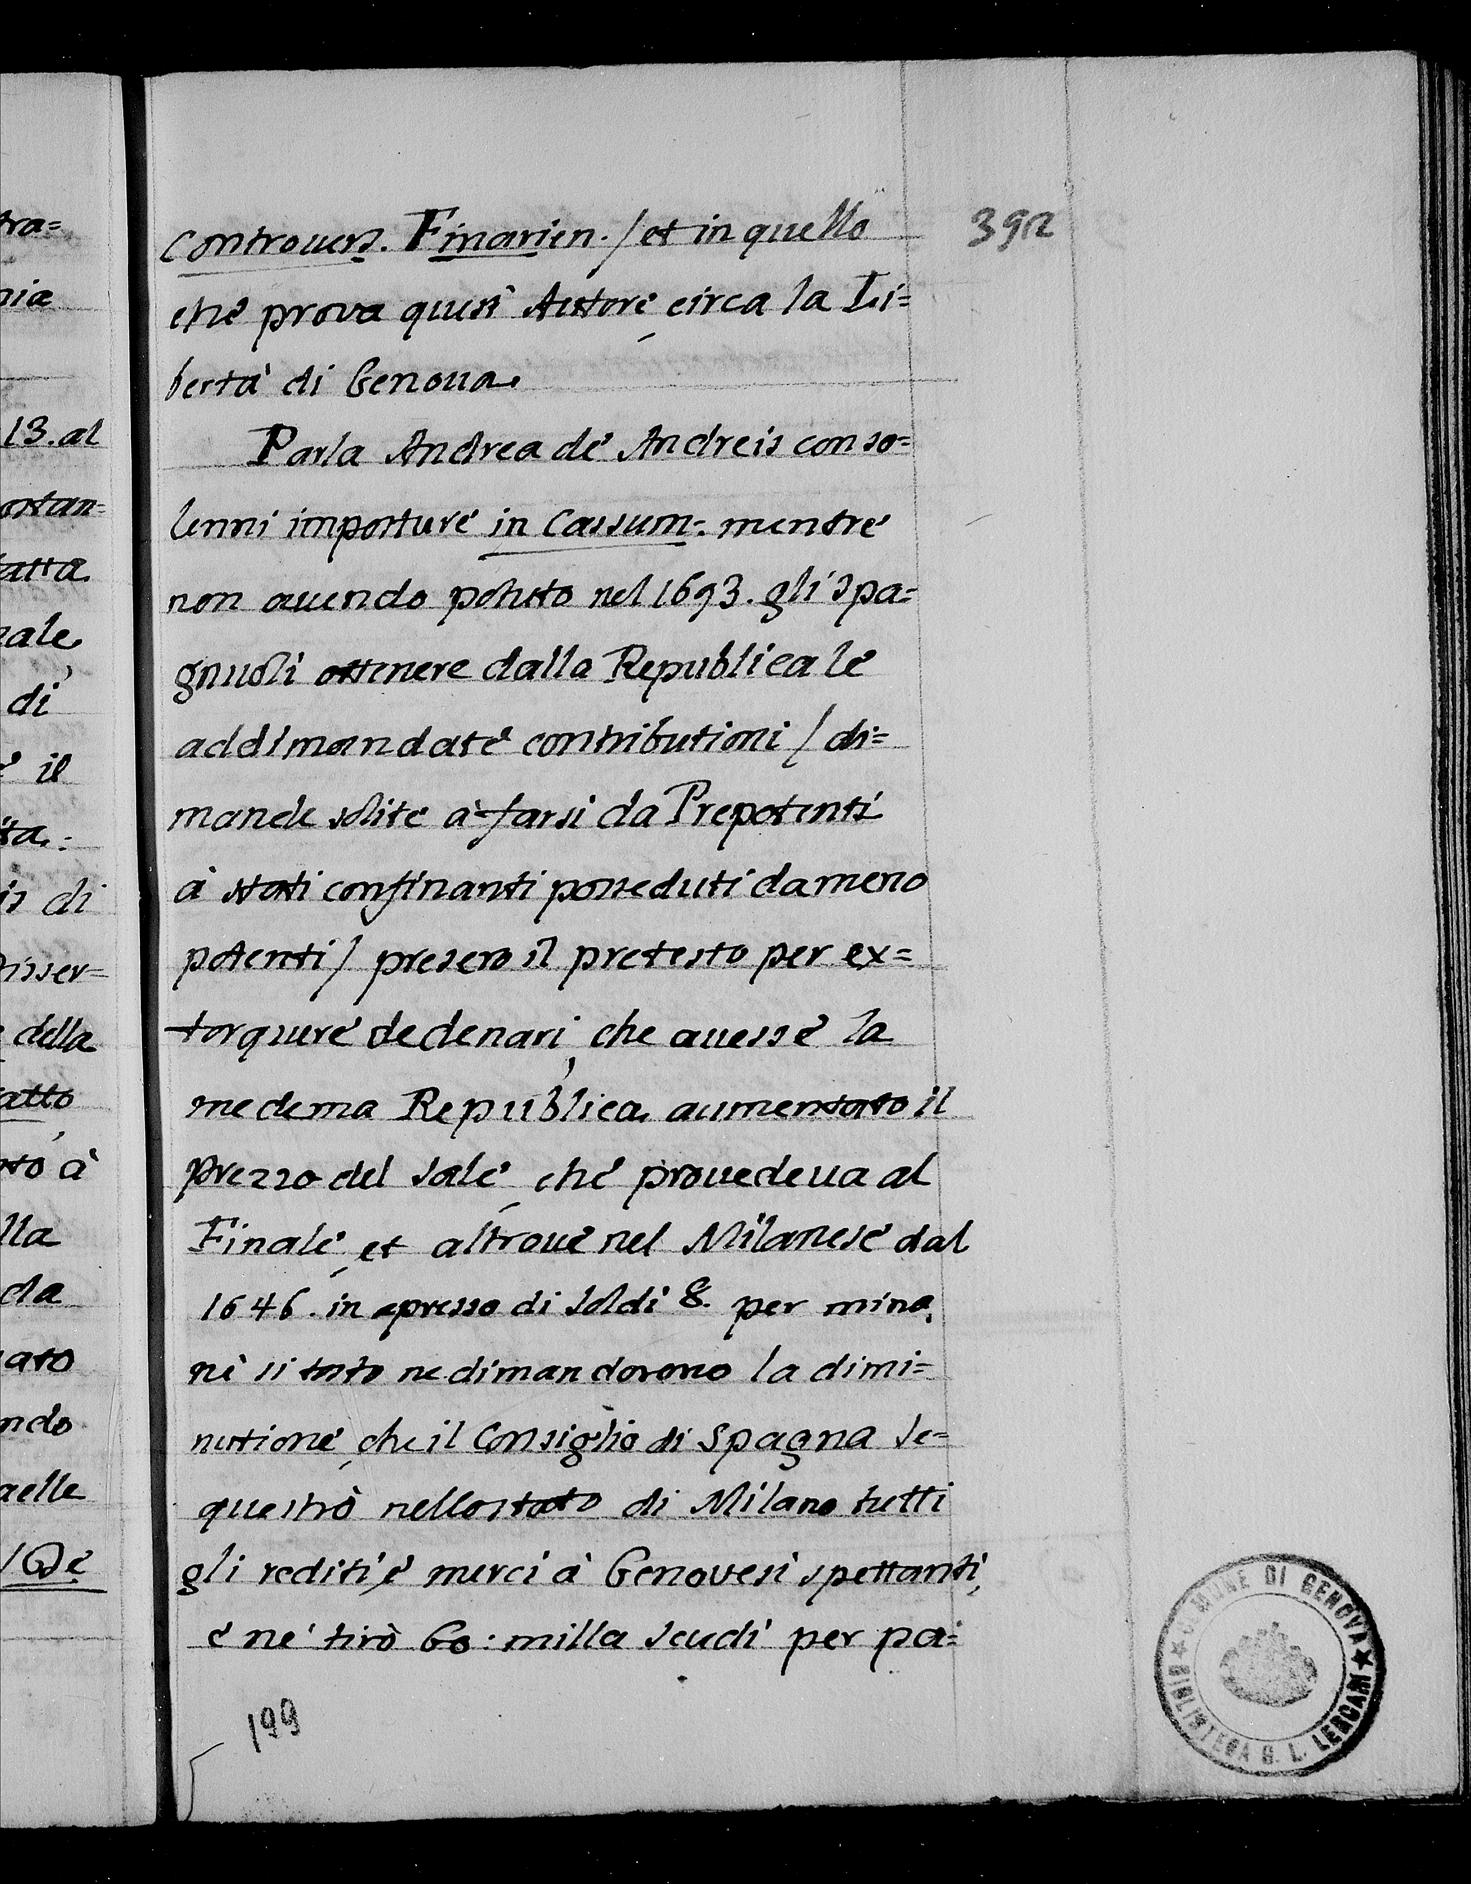 tra=
nia
13. al
ortan=
tatta
di
il
di
disser=
della
atto
à
lla
da
ato
ndo
aelle
/De
392
Controuers. Finarien. / et in quello
che prova quest' Autore, circa la Li=
bertà di Genoua.
Parla Andrea de Andreis con so=
lenni imposture in Cassum: mentre
non auendo potuto nel 1693. gli Spa=
gnuoli ottenere dalla Republica le
addimandate contributioni / di=
mande solite à farsi da Prepotenti
à stati confinanti posseduti da meno
potenti / presero il pretesto per ex=
torquere de denari, che auesse la
medema Republica aumentato il
prezzo del sale, che prouedeua al
Finale, et altroue nel Milanese dal
1646. in apresso di soldi 8. per mina,
nè si tosto ne dimandorono la dimi=
nutione, che il Consiglio di Spagna se=
questrò nello stato di Milano tutti
gli rediti, e merci à Genovesi spettanti,
e ne tirò 60. milla scudi per pa=
199
COMUNE DI GENOVA
BIBLIOTECA G. L. LERCARI